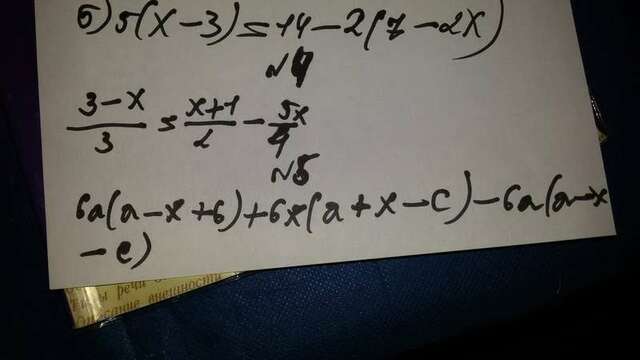 б) 5(x-3) = 14-2(7-2x)
№4
3-x/3 = x+1/2 - 5x/4
№5
6a(a-x+b)+6x(a+x-c)-6a(a-x
-c)
речи
Описание внешности